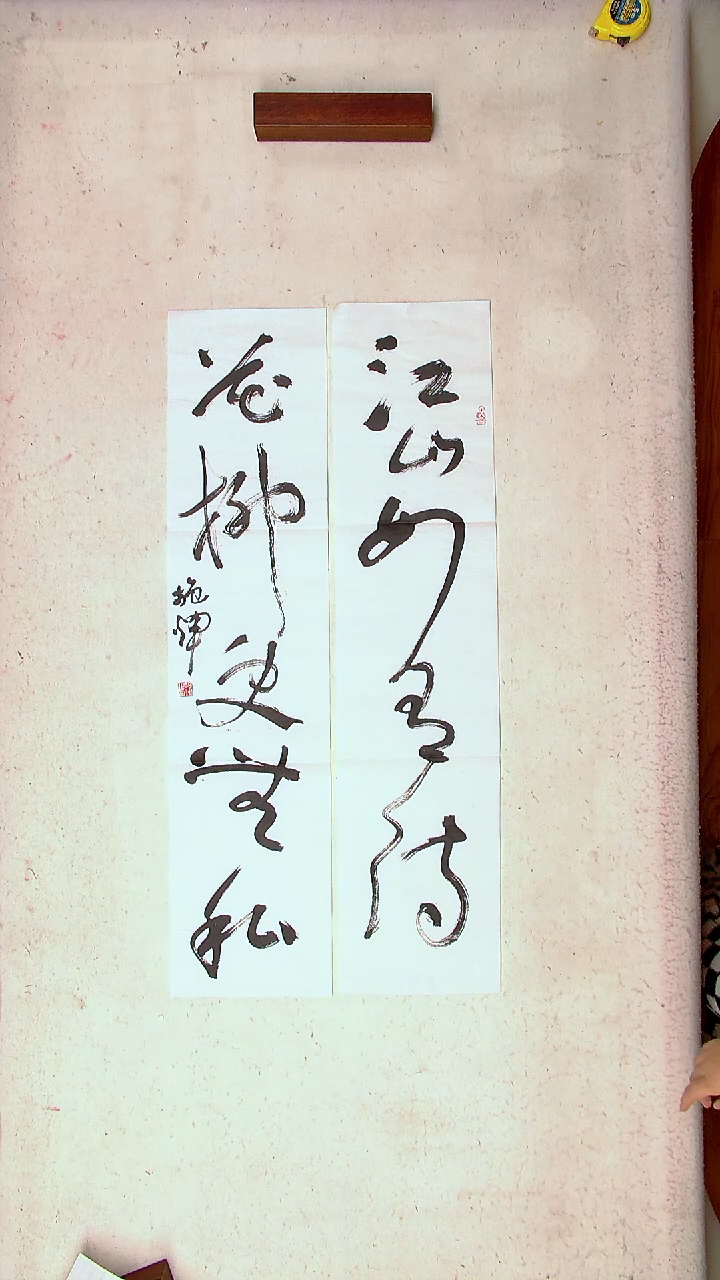 江山如有待
花柳更無私
施輝